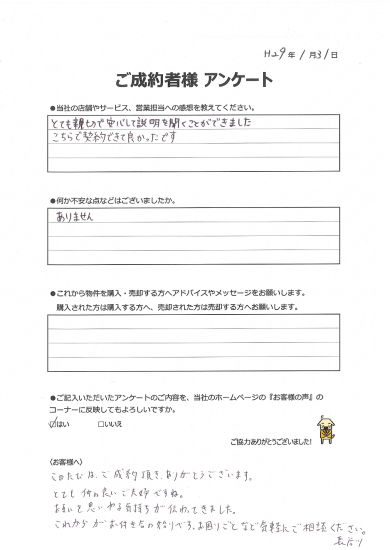 H29年1月31日
ご成約者様 アンケート
●当社の店舗やサービス、営業担当への感想を教えてください。
とても親切で安心して説明を聞くことができました
こちらで契約できて良かったです
●何か不安な点などはございましたか。
ありません
●これから物件を購入・売却する方へアドバイスやメッセージをお願いします。
購入された方は購入する方へ、売却された方は売却する方へお願いします。
●ご記入いただいたアンケートのご内容を、当社のホームページの『お客様の声』の
コーナーに反映してもよろしいですか。
☑はい □いいえ
ご協力ありがとうございました!
〈お客様へ〉
このたびは、ご成約頂き、ありがとうございます。
とても仲の良いご夫婦ですね。
お互いを思いやる気持ちが伝わってきました。
これからがお付き合の始りです。お困りごとなど気軽にご相談ください。